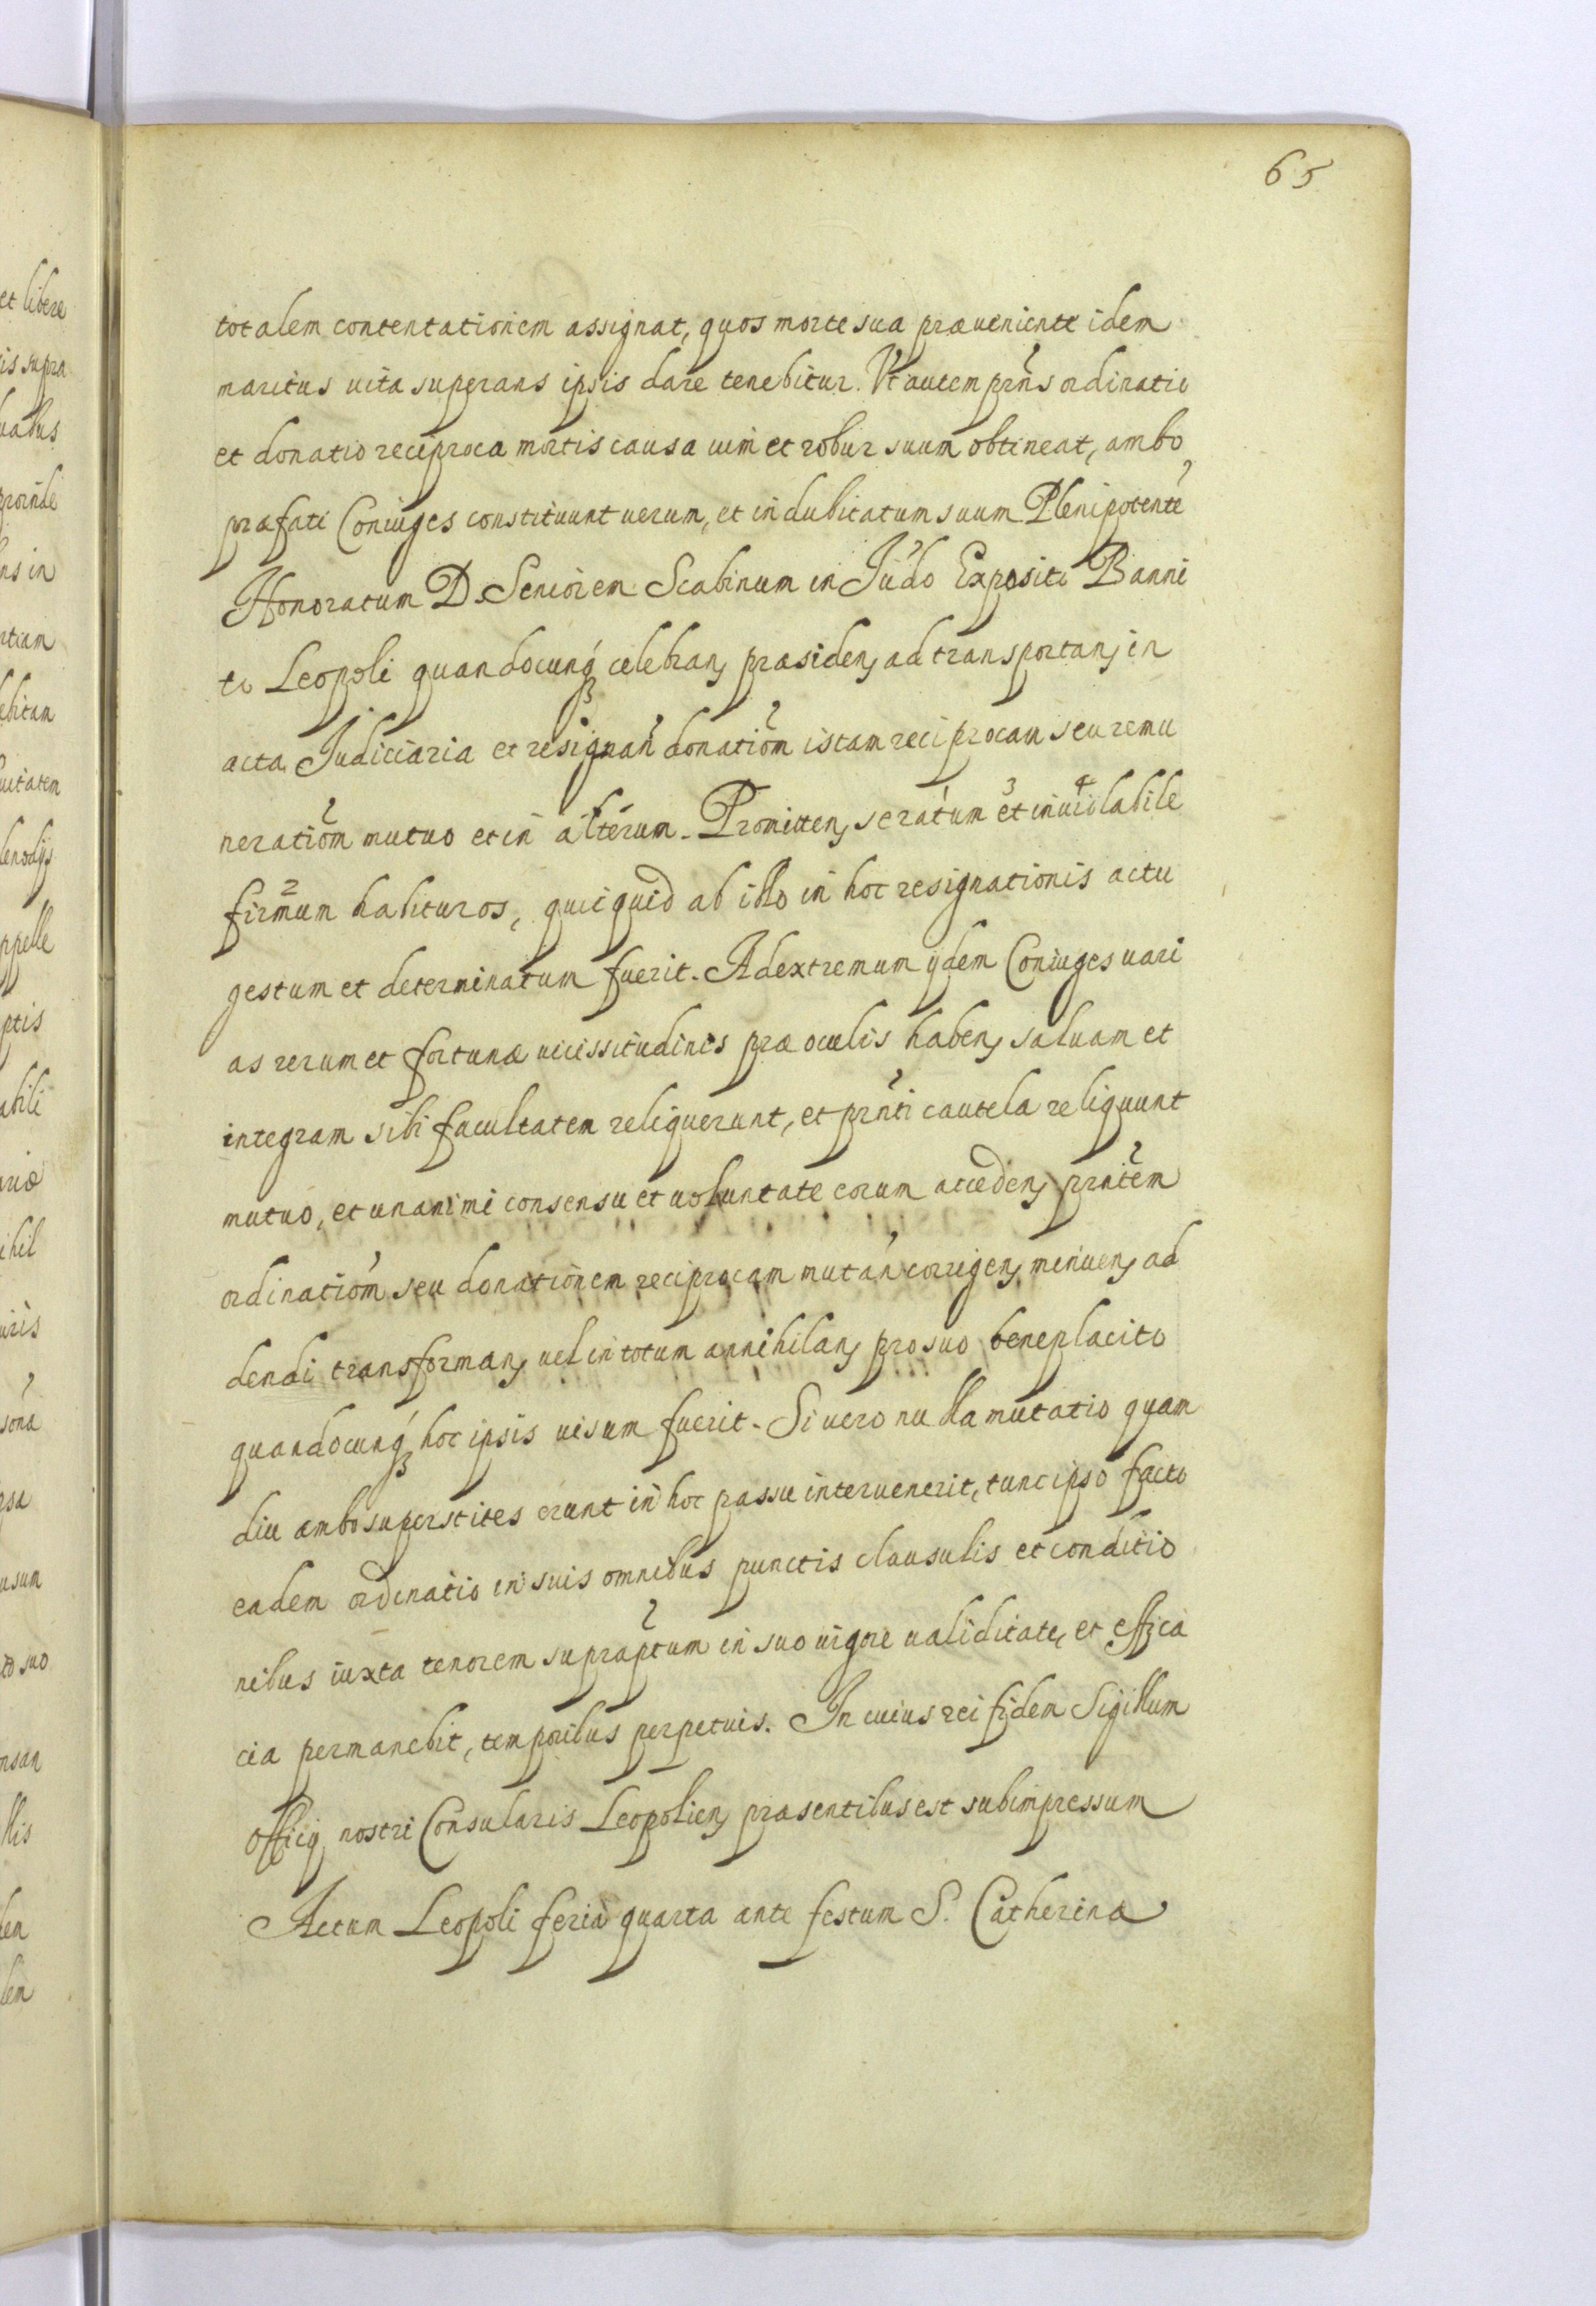 65
totalem contentationem assignat, quos morte sua præueniente idem
maritus uita superans ipsis dare tenebitur. Vt autem prñs ordinatio
et donatio reciproca mortis causa uim et robur suum obtineat, ambo
præfati Coniuges constituunt uerum, et indubitatum suum Plenipotente
Honoratum D. Seniorem Scabinum in Judo Expositi Banni
to Leopoli quandocunq celebran, præsiden, ad transportan, in
acta Judiciaria et resignan donatiom istam reciprocam seu remu
neratiom mutuo et in alterum. Promitten, se ratum et inuiolabile
firmum habituros, quicquid ab illo in hoc resignationis actu
gestum et determinatum fuerit. Ad extremum ijdem Coniuges uari
as rerum et fortunæ uicissitudines præ oculis haben, saluam et
integram sibi facultatem reliquerunt, et prñti cautela reliquunt
mutuo, et unanimi consensu et uoluntate eorum acceden, prñtem
ordinatiom seu donationem reciprocam mutan corrigen, minuen, ad
dendi transforman, uel in totum annihilan, pro suo beneplacito
quandocunq hoc ipsis uisum fuerit. Si uero nulla mutatio quam
diu ambo superstites erunt in hoc passu interuenerit, tunc ipso facto
eadem ordinatio in suis omnibus punctis clausulis et conditio
nibus iuxta tenorem supraptum in suo uigore ualiditate, et effica
cia permanebit, temporibus perpetuis. In cuius rei fidem Sigillum
Officij nostri Consularis Leopolien, præsentibus est subimpressum
Actum Leopoli feria quarta ante festum S. Catherinæ
et libere
is supra